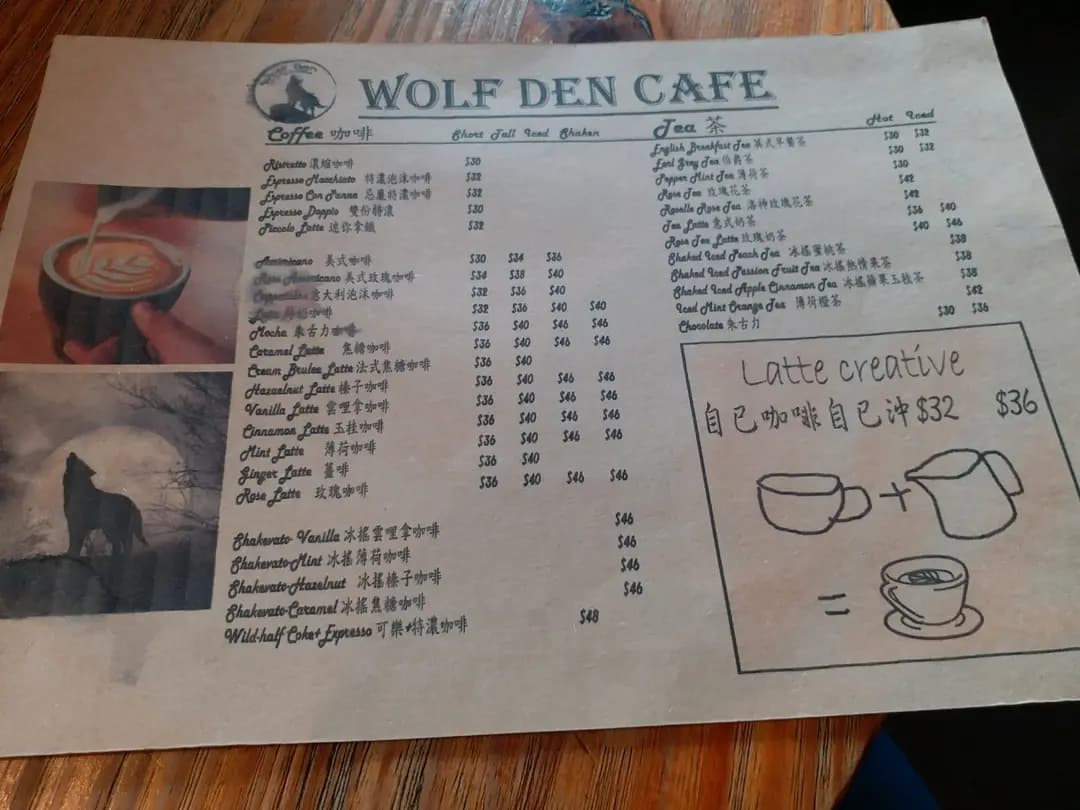 WOLF DEN CAFE
Coffee 咖啡 Short Tall Iced Shaken
Ristretto 濃縮咖啡 $30
Espresso Macchiato 特濃泡沫咖啡 $32
Espresso Con Panna 忌廉特濃咖啡 $32
Espresso Doppio 雙份特濃 $30
Piccolo Latte 迷你拿鐵 $32
Americano 美式咖啡 $30 $34 $36
Americano 美式玫瑰咖啡 $34 $38 $40
意大利泡沫咖啡 $32 $36 $40
咖啡 $32 $36 $40 $40
Mocha 朱古力咖啡 $36 $40 $46 $46
Caramel Latte 焦糖咖啡 $36 $40 $46 $46
Cream Brulee Latte 法式焦糖咖啡 $36 $40
Hazaelnut Latte 榛子咖啡 $36 $40 $46 $46
Vanilla Latte 雲哩拿咖啡 $36 $40 $46 $46
Cinnamon Latte 玉桂咖啡 $36 $40 $46 $46
Mint Latte 薄荷咖啡 $36 $40 $46 $46
Ginger Latte 薑啡 $36 $40
Rose Latte 玫瑰咖啡 $36 $40 $46 $46
Shakevato-Vanilla 冰搖雲哩拿咖啡 $46
Shakevato-Mint 冰搖薄荷咖啡 $46
Shakevato-Hazelnut 冰搖榛子咖啡 $46
Shakevato-Caramel 冰搖焦糖咖啡 $46
Wild-half Coke+Expresso 可樂+特濃咖啡 $48
Tea 茶 Hot Iced
English Breakfast Tea 英式早餐茶 $30 $32
Earl Grey Tea 伯爵茶 $30 $32
Pepper Mint Tea 薄荷茶 $30
Rose Tea 玫瑰花茶 $42
Roselle Rose Tea 洛神玫瑰花茶 $42
Tea Latte 意式奶茶 $36 $40
Rose Tea Latte 玫瑰奶茶 $40 $46
Shaked Iced Peach Tea 冰搖蜜桃茶 $38
Shaked Iced Passion Fruit Tea 冰搖熱情果茶 $38
Shaked Iced Apple Cinnamon Tea 冰搖蘋果玉桂茶 $38
Iced Mint Orange Tea 薄荷橙茶 $42
Chocolate 朱古力 $30 $36
Latte creative
自已咖啡自已沖 $32 $36
+
=